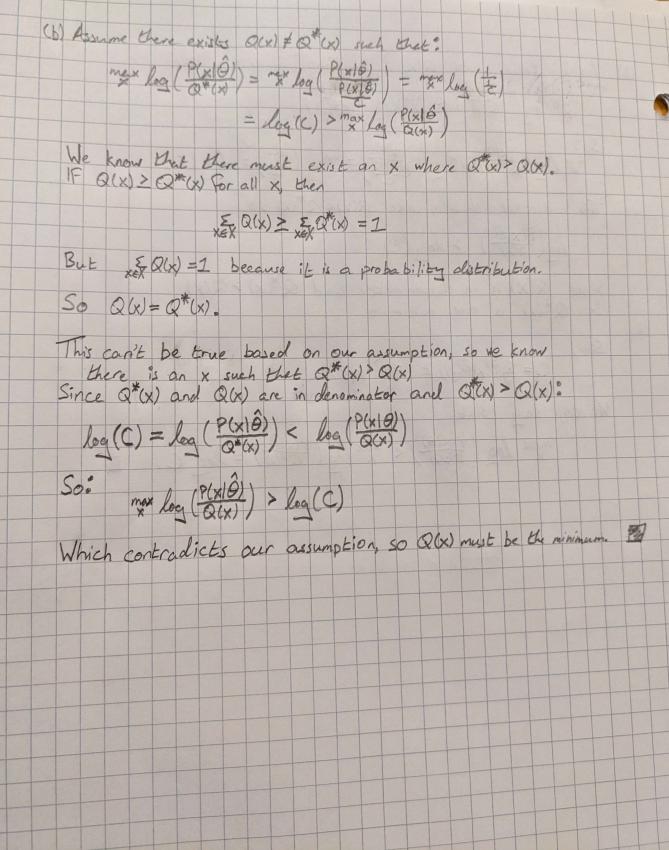 (b) Assume there exists Q(x) ≠ Q*(x) such that:
max_x log(P(x|θ̂)/Q*(x)) = max_x log(P(x|θ̂)/(P(x|θ̂)/C)) = max_x log(1/(1/C))
= log(C) > max_x log(P(x|θ̂)/Q(x))
We know that there must exist an x where Q*(x) > Q(x).
IF Q(x) ≥ Q*(x) for all x, then
Σ_{x∈X} Q(x) ≥ Σ_{x∈X} Q*(x) = 1
But Σ_{x∈X} Q(x) = 1 because it is a probability distribution.
So Q(x) = Q*(x).
This can't be true based on our assumption, so we know
there is an x such that Q*(x) > Q(x)
Since Q*(x) and Q(x) are in denominator and Q*(x) > Q(x):
log(C) = log(P(x|θ̂)/Q*(x)) < log(P(x|θ̂)/Q(x))
So:
max_x log(P(x|θ̂)/Q(x)) > log(C)
Which contradicts our assumption, so Q(x) must be the minimum.